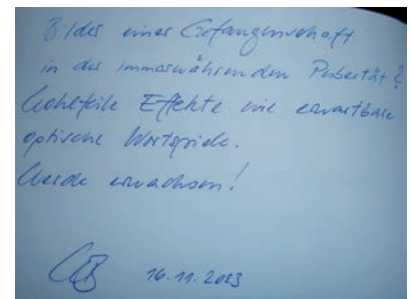 Bilder einer Gefangenschaft
in der immerwährenden Pubertät?
Wohlfeile Effekte wie erwartbare
optische Wortspiele.
Werde erwachsen!
16.11.2023